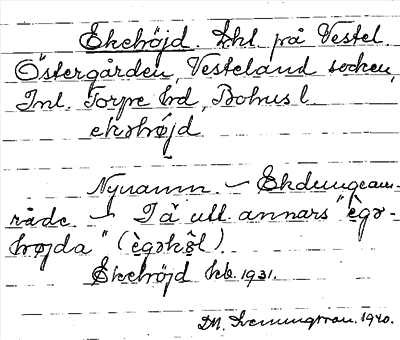 Ekehöjd. Lht på Vestel
Östergården, Vesteland socken,
Inl. Torpe hd, Bohus l.
ekəhǿjd
Nynamn. – Ekdungeom-
råde. – I ä. utt. annars "ègə-
hǿjda" (ègəkə̂l).
Ekehöjd kb. 1931.
DM. 1940.